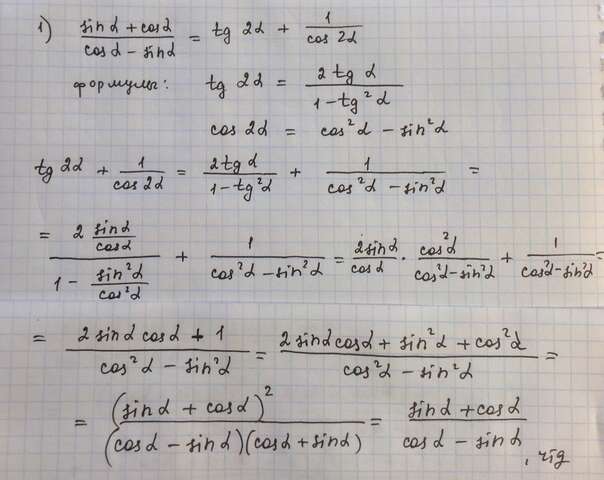 1) (sin α + cos α)/(cos α - sin α) = tg 2α + 1/(cos 2α)
формулы: tg 2α = (2 tg α)/(1 - tg²α)
cos 2α = cos²α - sin²α
tg 2α + 1/(cos 2α) = (2 tg α)/(1 - tg²α) + 1/(cos²α - sin²α) =
= (2 (sin α)/(cos α))/(1 - (sin²α)/(cos²α)) + 1/(cos²α - sin²α) = (2 sin α)/(cos α) · (cos²α)/(cos²α - sin²α) + 1/(cos²α - sin²α) =
= (2 sin α cos α + 1)/(cos²α - sin²α) = (2 sin α cos α + sin²α + cos²α)/(cos²α - sin²α) =
= (sin α + cos α)²/((cos α - sin α)(cos α + sin α)) = (sin α + cos α)/(cos α - sin α), чтд